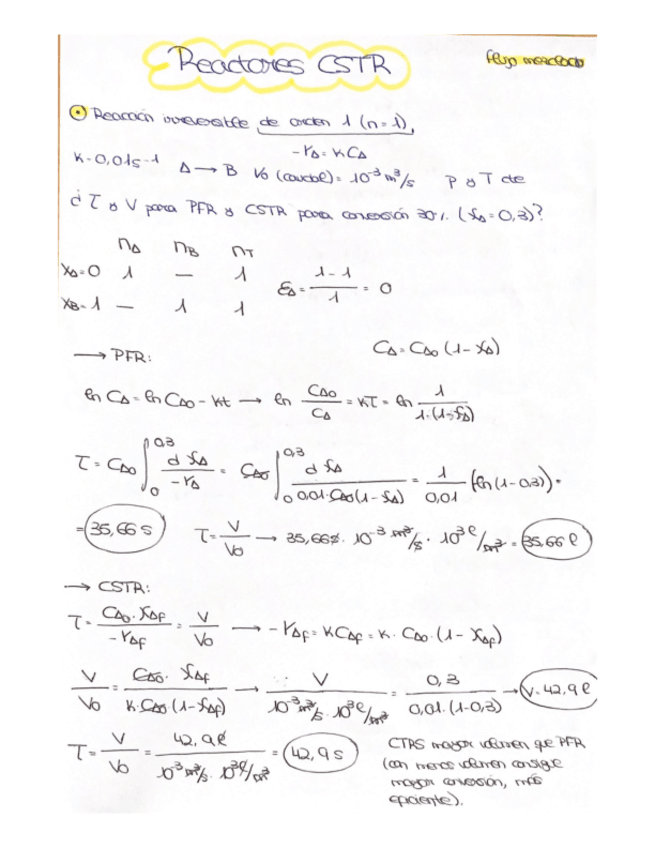 Reactores CSTR
flujo mezclado
Reacción irreversible de orden 1 (n=1),
-rA = KCA
K=0,01s-1 A → B V0 (caudal) = 10^-3 m^3/s P y T cte
¿ τ y V para PFR y CSTR para conversión 30% (XA=0,3)?
nA nB nT
XA=0 1 — 1
XB=1 — 1 1
εA = (1-1)/1 = 0
→ PFR:
CA = CA0 (1-XA)
ln CA = ln CA0 - Kt → ln CA0/CA = Kτ = ln 1/(1·(1-XA))
τ = CA0 ∫_0^0,3 dXA/-rA = CA0 ∫_0^0,3 dXA/(0,01·CA0(1-XA)) = 1/0,01 (ln(1-0,3)) =
= 35,66 s τ = V/V0 → 35,66s · 10^-3 m^3/s · 10^3 l/m^3 = 35,66 l
→ CSTR:
τ = CA0·XAf/-rAf = V/V0 → -rAf = KCAf = K·CA0·(1-XAf)
V/V0 = CA0·XAf/(K·CA0·(1-XAf)) → V/(10^-3 m^3/s · 10^3 l/m^3) = 0,3/(0,01·(1-0,3)) → V=42,9 l
τ = V/V0 = 42,9 l/(10^3 m^3/s · 10^3 l/m^3) = 42,9 s
CTRS mayor volumen que PFR
(con menos volumen consigue
mayor conversión, más
eficiente).